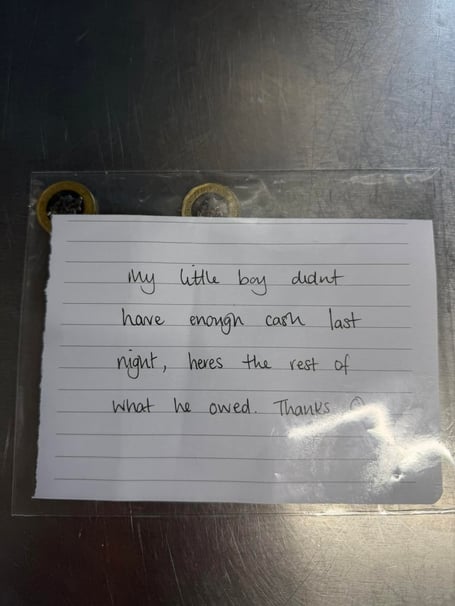 My little boy didnt
have enough cash last
night, heres the rest of
what he owed. Thanks ☺